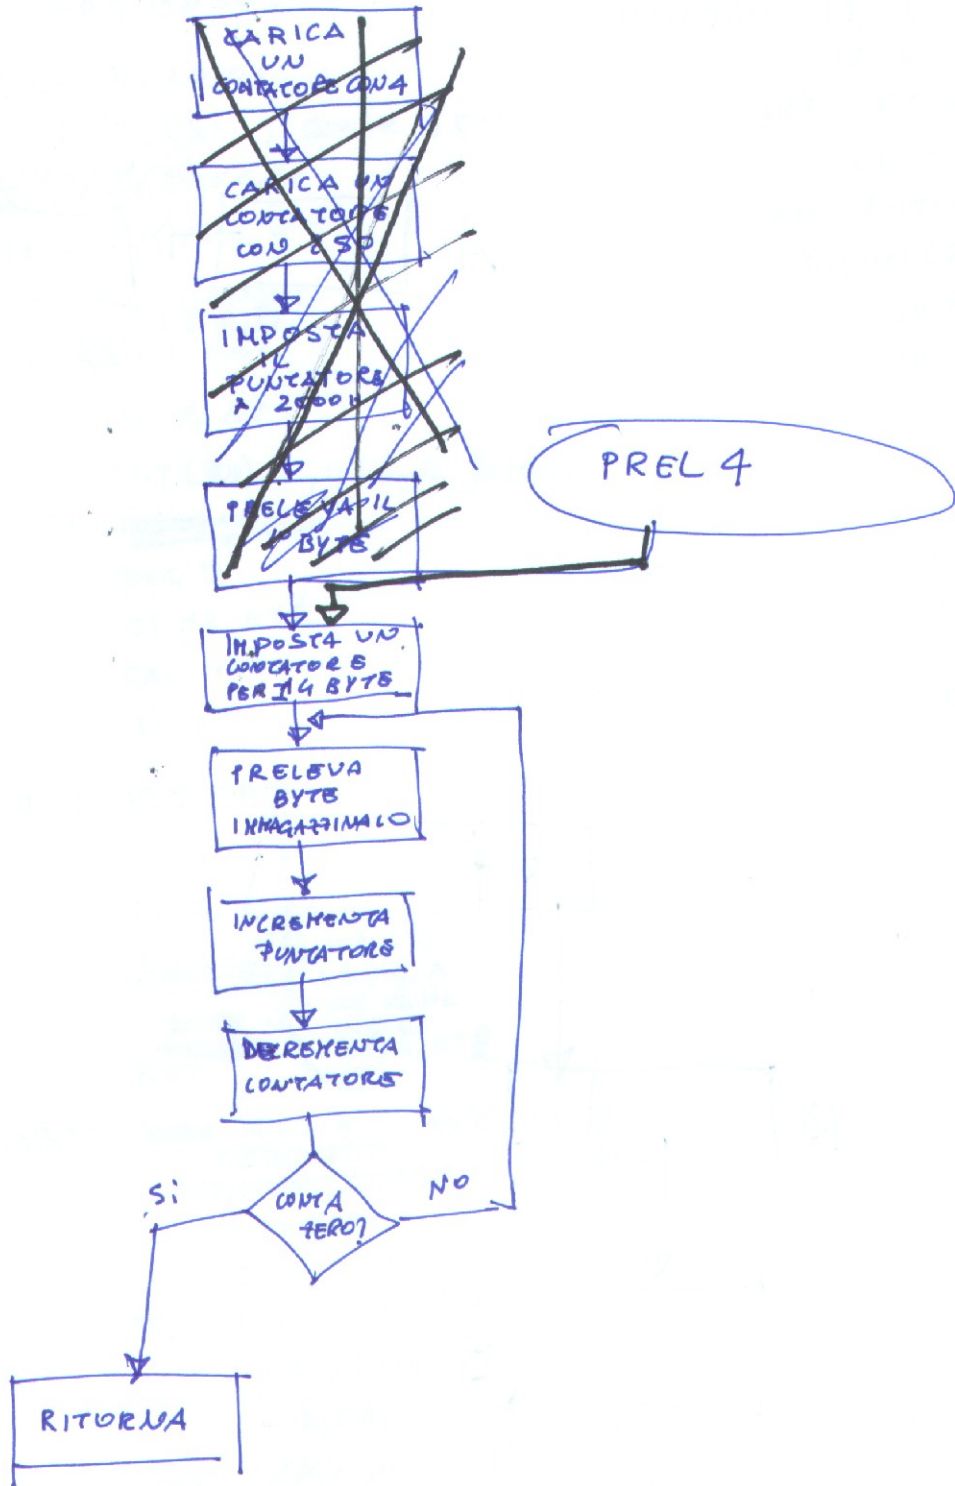 CARICA
UN
CONTATORE CON 4
CARICA UN
CONTATORE
CON 250
IMPOSTA
IL
PUNTATORE
A 2000H
PRELEVA IL
1° BYTE
PREL 4
IMPOSTA UN
CONTATORE
PER I 4 BYTE
PRELEVA
BYTE
IMMAGAZZINALO
INCREMENTA
PUNTATORE
DECREMENTA
CONTATORE
CONTA
ZERO?
Si
NO
RITORNA